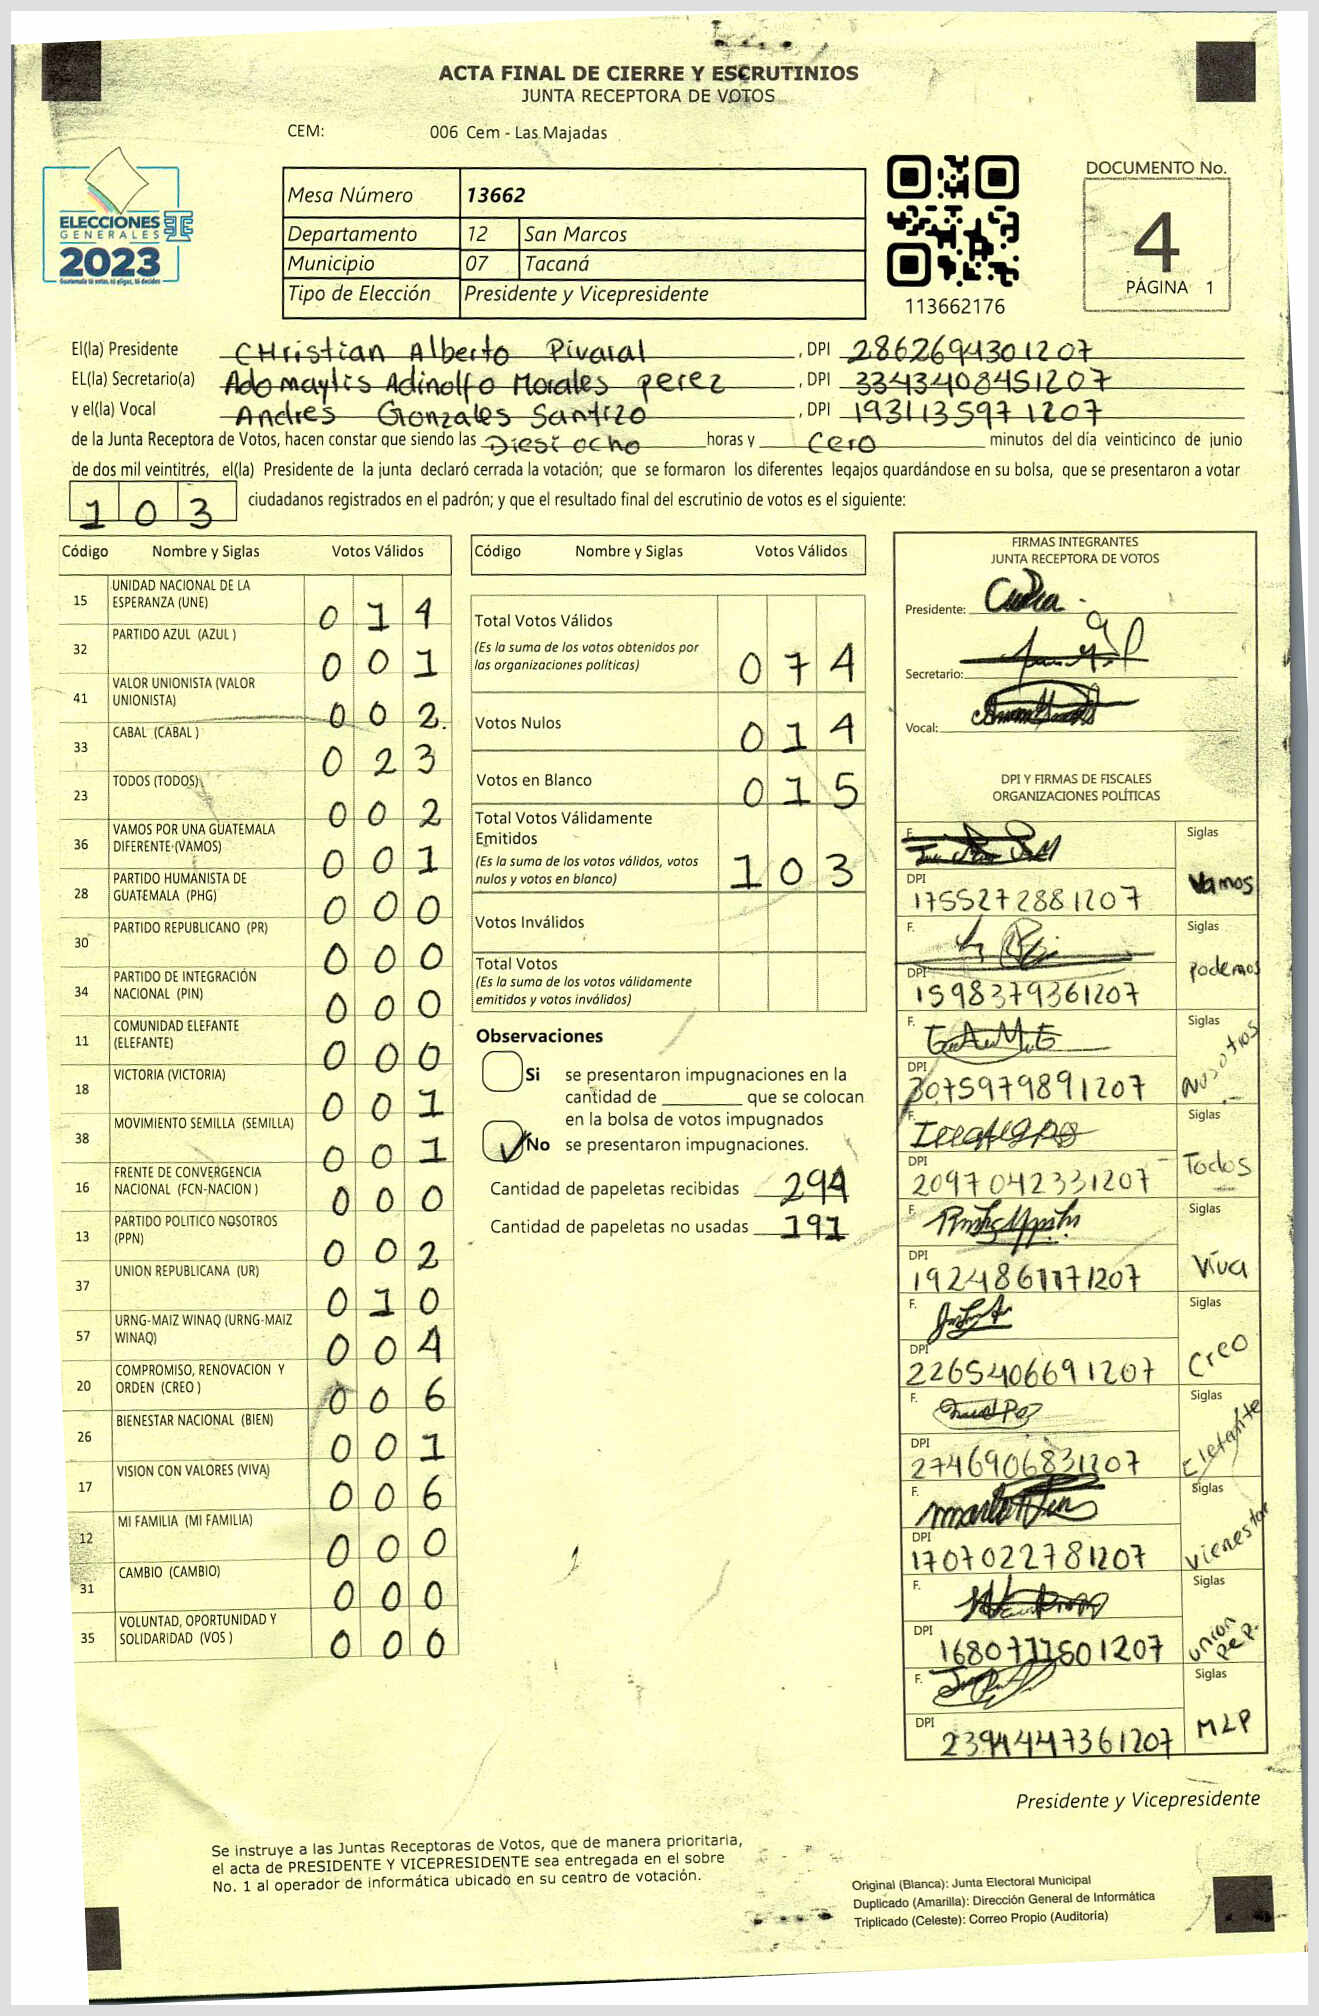 ACTA FINAL DE CIERRE Y ESCRUTINIOS
JUNTA RECEPTORA DE VOTOS
CEM: 006 Cem - Las Majadas
ELECCIONES
GENERALES
2023
Guatemala tú votas, tú eliges, tú decides
TSE
Mesa Número 13662
Departamento 12 San Marcos
Municipio 07 Tacaná
Tipo de Elección Presidente y Vicepresidente
113662176
DOCUMENTO No.
4
PÁGINA 1
El(la) Presidente CHristian Alberto Pivaral , DPI 2862694301207
EL(la) Secretario(a) Adomaylis Adinolfo Morales perez , DPI 3343408451207
y el(la) Vocal Andres Gonzales Santizo , DPI 1931135971207
de la Junta Receptora de Votos, hacen constar que siendo las Diesi ocho horas y cero minutos del día veinticinco de junio
de dos mil veintitrés, el(la) Presidente de la junta declaró cerrada la votación; que se formaron los diferentes legajos quardándose en su bolsa, que se presentaron a votar
103 ciudadanos registrados en el padrón; y que el resultado final del escrutinio de votos es el siguiente:
Código Nombre y Siglas Votos Válidos
15 UNIDAD NACIONAL DE LA ESPERANZA (UNE) 014
32 PARTIDO AZUL (AZUL ) 001
41 VALOR UNIONISTA (VALOR UNIONISTA) 002.
33 CABAL (CABAL ) 023
23 TODOS (TODOS) 002
36 VAMOS POR UNA GUATEMALA DIFERENTE (VAMOS) 001
28 PARTIDO HUMANISTA DE GUATEMALA (PHG) 000
30 PARTIDO REPUBLICANO (PR) 000
34 PARTIDO DE INTEGRACIÓN NACIONAL (PIN) 000
11 COMUNIDAD ELEFANTE (ELEFANTE) 000
18 VICTORIA (VICTORIA) 001
38 MOVIMIENTO SEMILLA (SEMILLA) 001
16 FRENTE DE CONVERGENCIA NACIONAL (FCN-NACION ) 000
13 PARTIDO POLITICO NOSOTROS (PPN) 002
37 UNION REPUBLICANA (UR) 010
57 URNG-MAIZ WINAQ (URNG-MAIZ WINAQ) 004
20 COMPROMISO, RENOVACION Y ORDEN (CREO ) 006
26 BIENESTAR NACIONAL (BIEN) 001
17 VISION CON VALORES (VIVA) 006
12 MI FAMILIA (MI FAMILIA) 000
31 CAMBIO (CAMBIO) 000
35 VOLUNTAD, OPORTUNIDAD Y SOLIDARIDAD (VOS ) 000
Código Nombre y Siglas Votos Válidos
Total Votos Válidos
(Es la suma de los votos obtenidos por
las organizaciones políticas) 074
Votos Nulos 014
Votos en Blanco 015
Total Votos Válidamente
Emitidos
(Es la suma de los votos válidos, votos
nulos y votos en blanco) 103
Votos Inválidos
Total Votos
(Es la suma de los votos válidamente
emitidos y votos inválidos)
Observaciones
Si se presentaron impugnaciones en la
cantidad de ________ que se colocan
en la bolsa de votos impugnados
No se presentaron impugnaciones.
Cantidad de papeletas recibidas 294
Cantidad de papeletas no usadas 191
FIRMAS INTEGRANTES
JUNTA RECEPTORA DE VOTOS
Presidente:
Secretario:
Vocal:
DPI Y FIRMAS DE FISCALES
ORGANIZACIONES POLÍTICAS
F. Siglas
DPI Vamos
1755272881207
F. Siglas
DPI podemos
1598379361207
F. Siglas
DPI Nosotros
3075979891207
F. Siglas
DPI Todos
2097042331207
F. Siglas
DPI Viva
1924861171207
F. Siglas
DPI Creo
2265406691207
F. Siglas
DPI Elefante
2746906831207
F. Siglas
DPI vienestar
1707022781207
F. Siglas
DPI union
1680777501207 ReP.
F. Siglas
DPI MLP
2394447361207
Presidente y Vicepresidente
Se instruye a las Juntas Receptoras de Votos, que de manera prioritaria,
el acta de PRESIDENTE Y VICEPRESIDENTE sea entregada en el sobre
No. 1 al operador de informática ubicado en su centro de votación.
Original (Blanca): Junta Electoral Municipal
Duplicado (Amarilla): Dirección General de Informática
Triplicado (Celeste): Correo Propio (Auditoría)